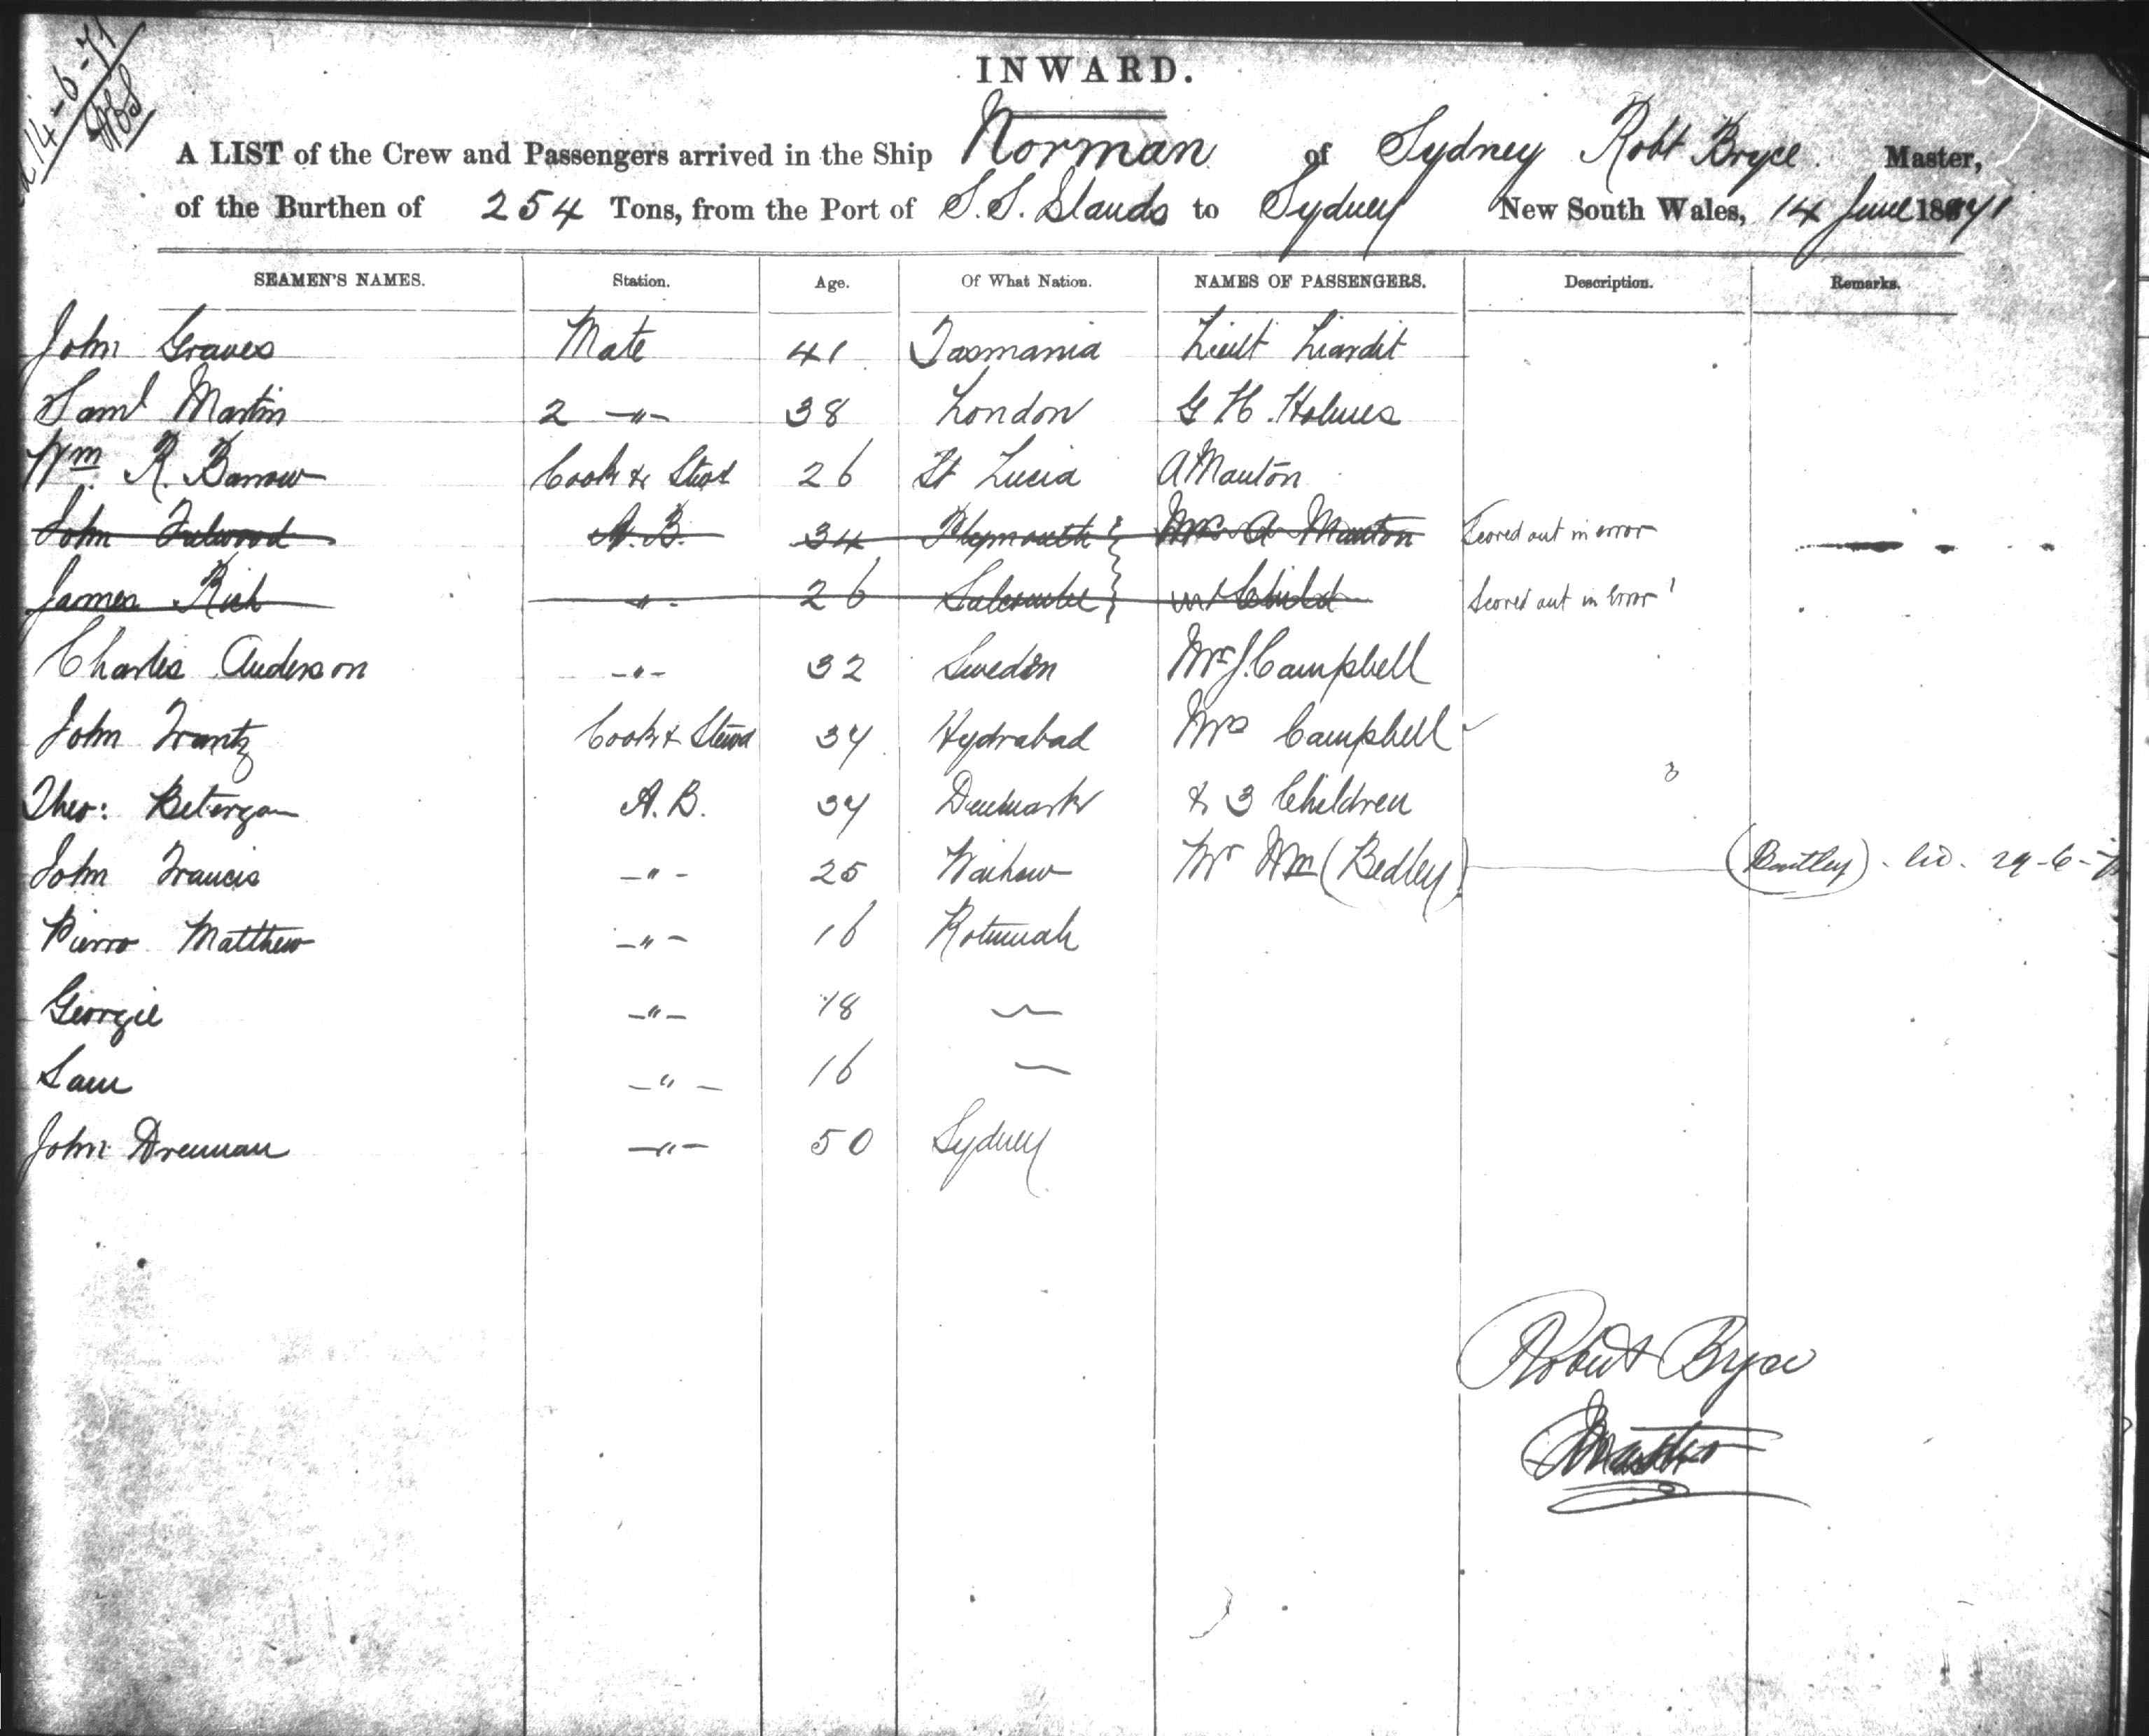 14-6-71
INWARD.
A LIST of the Crew and Passengers arrived in the Ship Norman of Sydney Robt Bryce Master,
of the Burthen of 254 Tons, from the Port of S. S. Islands to Sydney New South Wales, 14 June 1871
SEAMEN'S NAMES. Station. Age. Of What Nation. NAMES OF PASSENGERS. Description. Remarks.
John Graves Mate 41 Tasmania Lieut Liardet
Saml Martin 2 -"- 38 London G H. Holmes
Wm R. Barrow Cook & Stwd 26 St Lucia A Manton
John Fulwood A. B. 34 Plymouth Mrs A Manton Scored out in error
James Rich " 26 Salcombe Child Scored out in Error
Charles Anderson -"- 32 Sweden Mr J. Campbell
John Frantz Cook & Stewd 34 Hydrabad Mrs Campbell
Theo: A. B. 34 Denmark & 3 Children
John Francis -"- 25 Mr Wm (Bedley) (Bentley) 29-6-
Pierro Matthew -"- 16 Rotumah
Georgie -"- 18 —
Sam -"- 16 —
John Drennan -"- 50 Sydney
Robert Bryce
Master